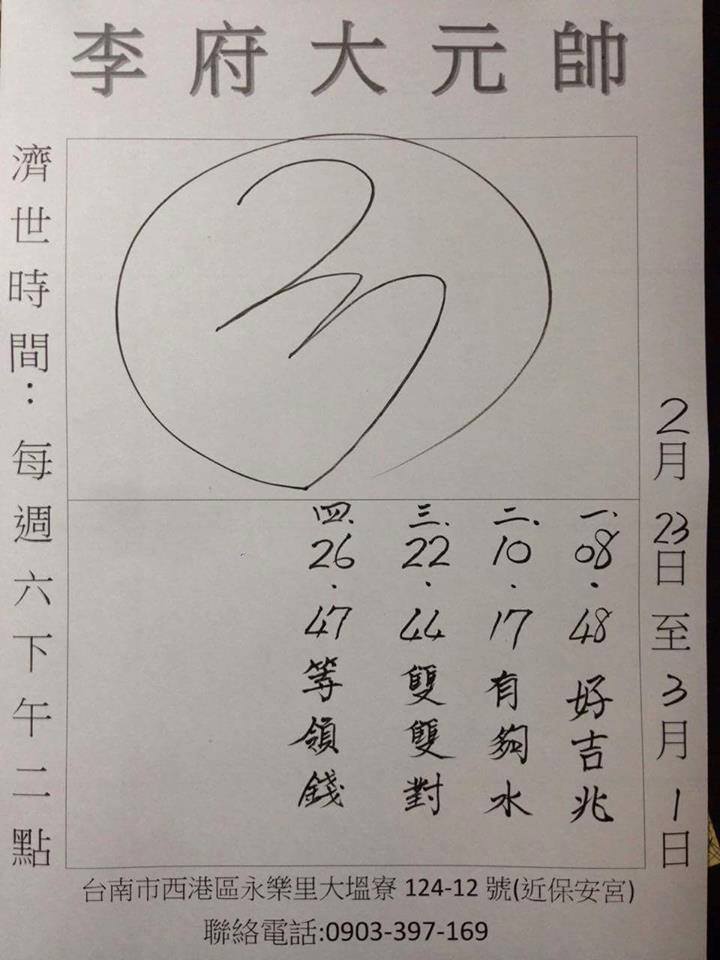 李府大元帥
2月23日至3月1日
一、08.48好吉兆
二、10.17有夠水
三、22.44雙雙對
四、26.47等領錢
濟世時間：每週六下午二點
台南市西港區永樂里大塭寮124-12號(近保安宮)
聯絡電話:0903-397-169